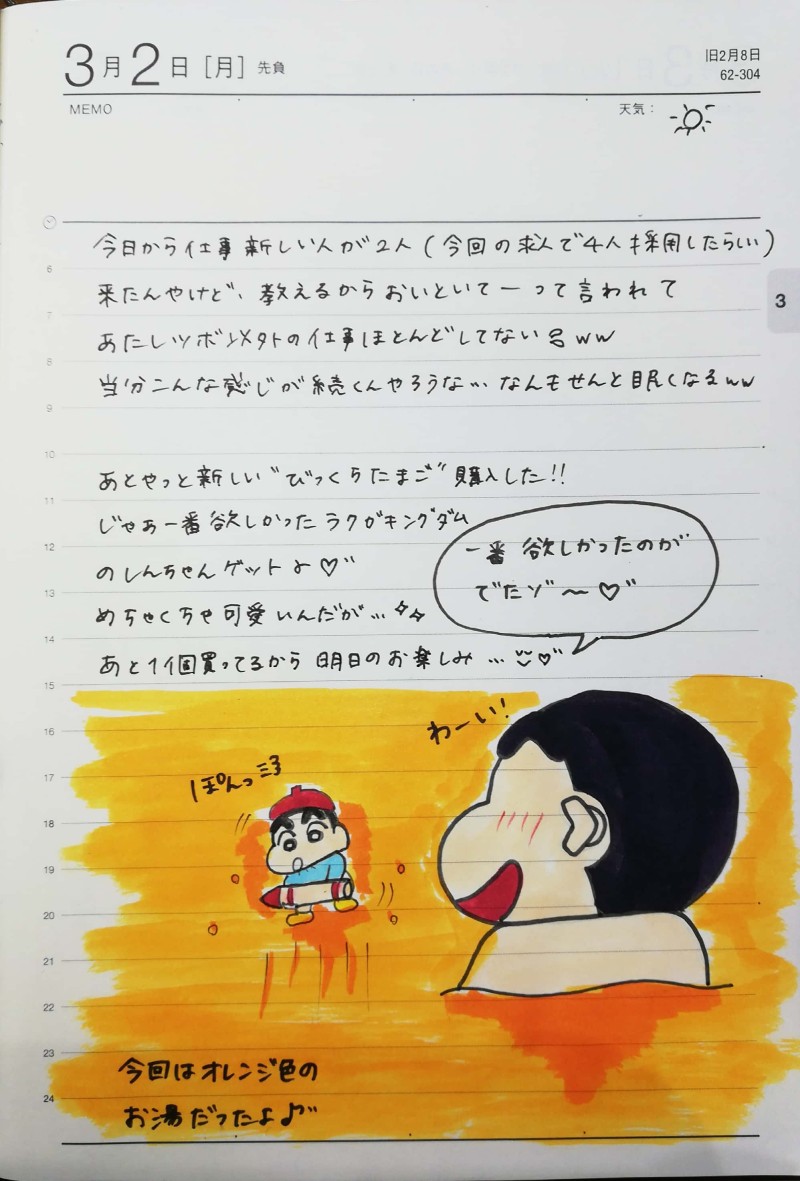 3月2日[月] 先負
旧2月8日
62-304
MEMO
天気：
今日から仕事新しい人が2人(今回の求人で4人採用したらしい)
6
来たんやけど、教えるからおいといてーって言われて
7
あたしツボ以外の仕事ほとんどしてない号ww
3
8
当分こんな感じが続くんやろうな… なんもせんと眠くなるww
9
10
あとやっと新しい"びっくらたまご"購入した!!
11
じゃあ一番欲しかったラクガキングダム
12
のしんちゃんゲットよ♡"
一番欲しかったのが
13
でたゾ〜♡"
めちゃくちゃ可愛いんだが…
14
あと1個買ってるから明日のお楽しみ…
15
16
わーい!
17
ぽんっ
18
19
20
21
22
23
今回はオレンジ色の
24
お湯だったよ♪"